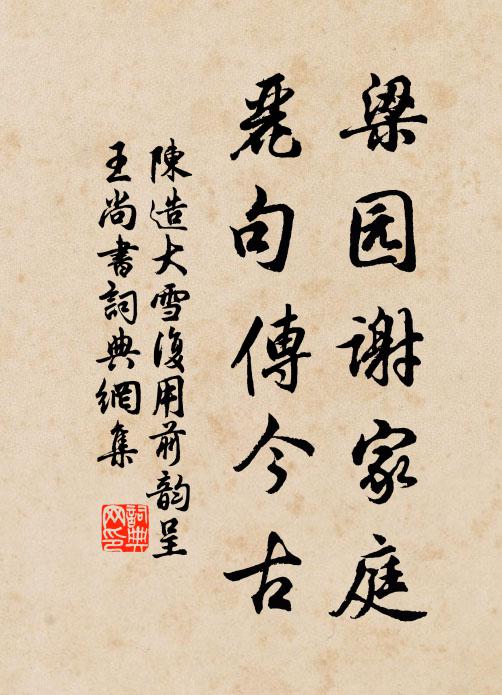 梁园谢家庭
麗句傳今古
陳造大雪復用前韵呈
王尚書詞典網集
詞典网印